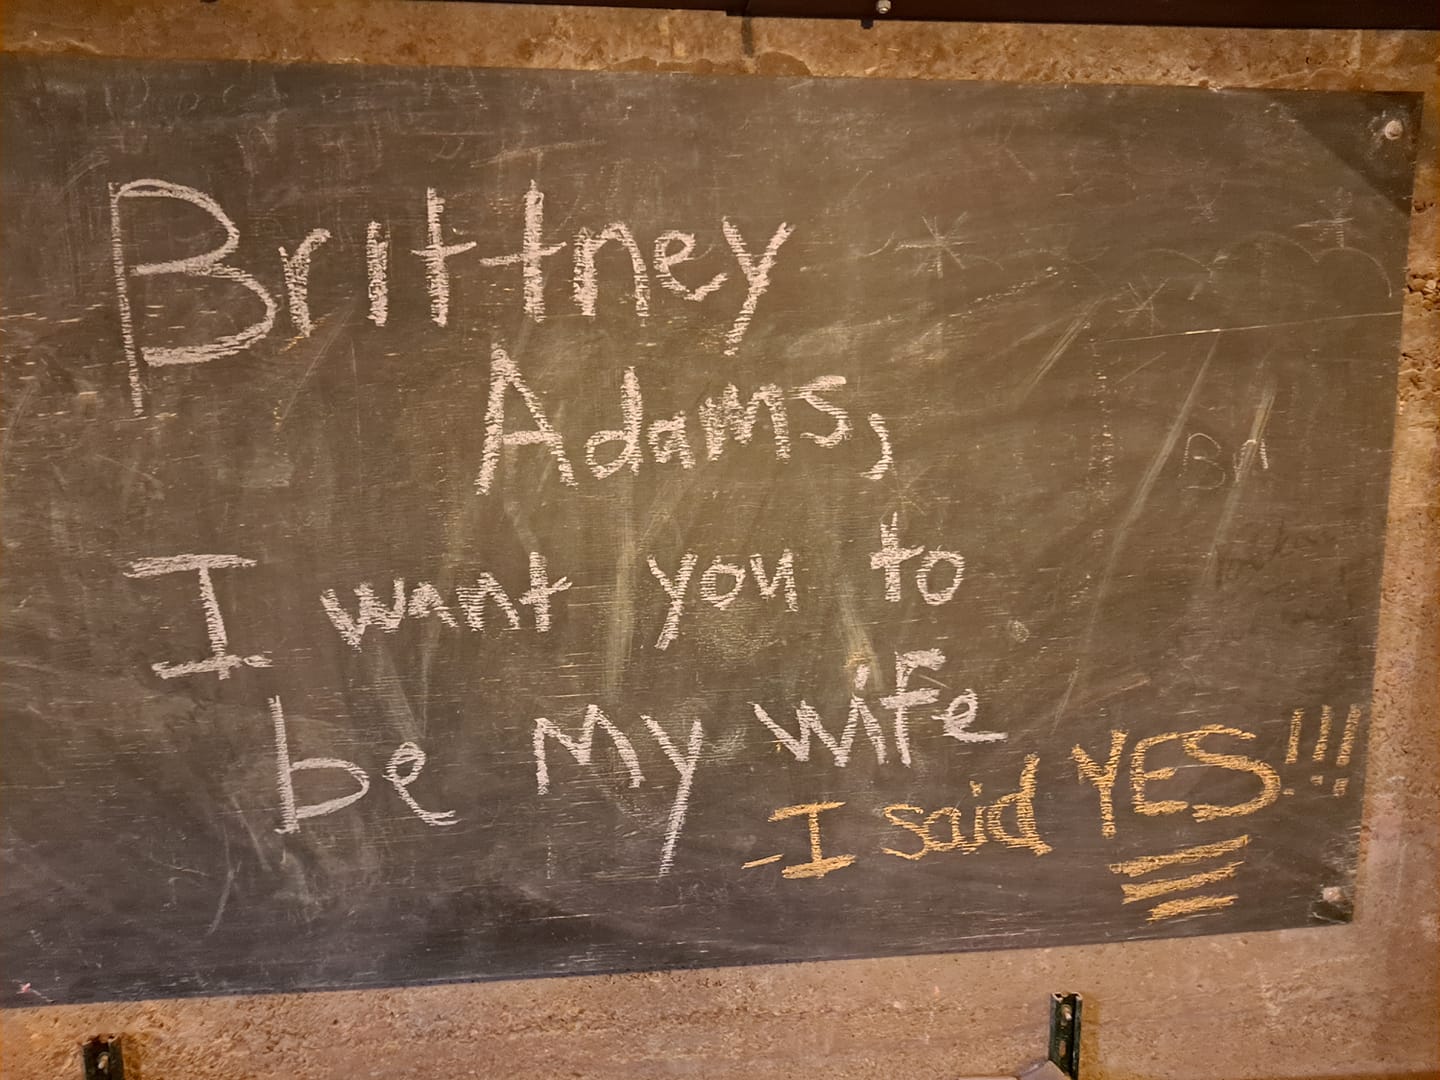 Brittney
Adams,
I want you to
be My wife
-I said YES!!!